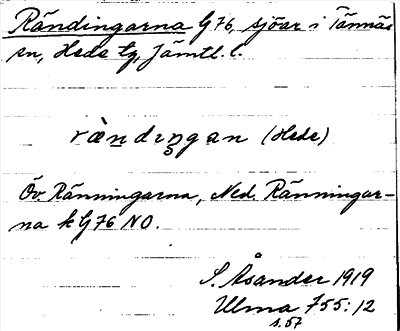 Rändingarna G 76, sjöar i Tännäs
sn, Hede tg, Jämtl. l.
rän̠diŋgan (Hede)
Öv. Ränningarna, Ned. Ränningar-
na k G 76 NO.
S. Åsander 1919
Ulma 755:12
s. 57